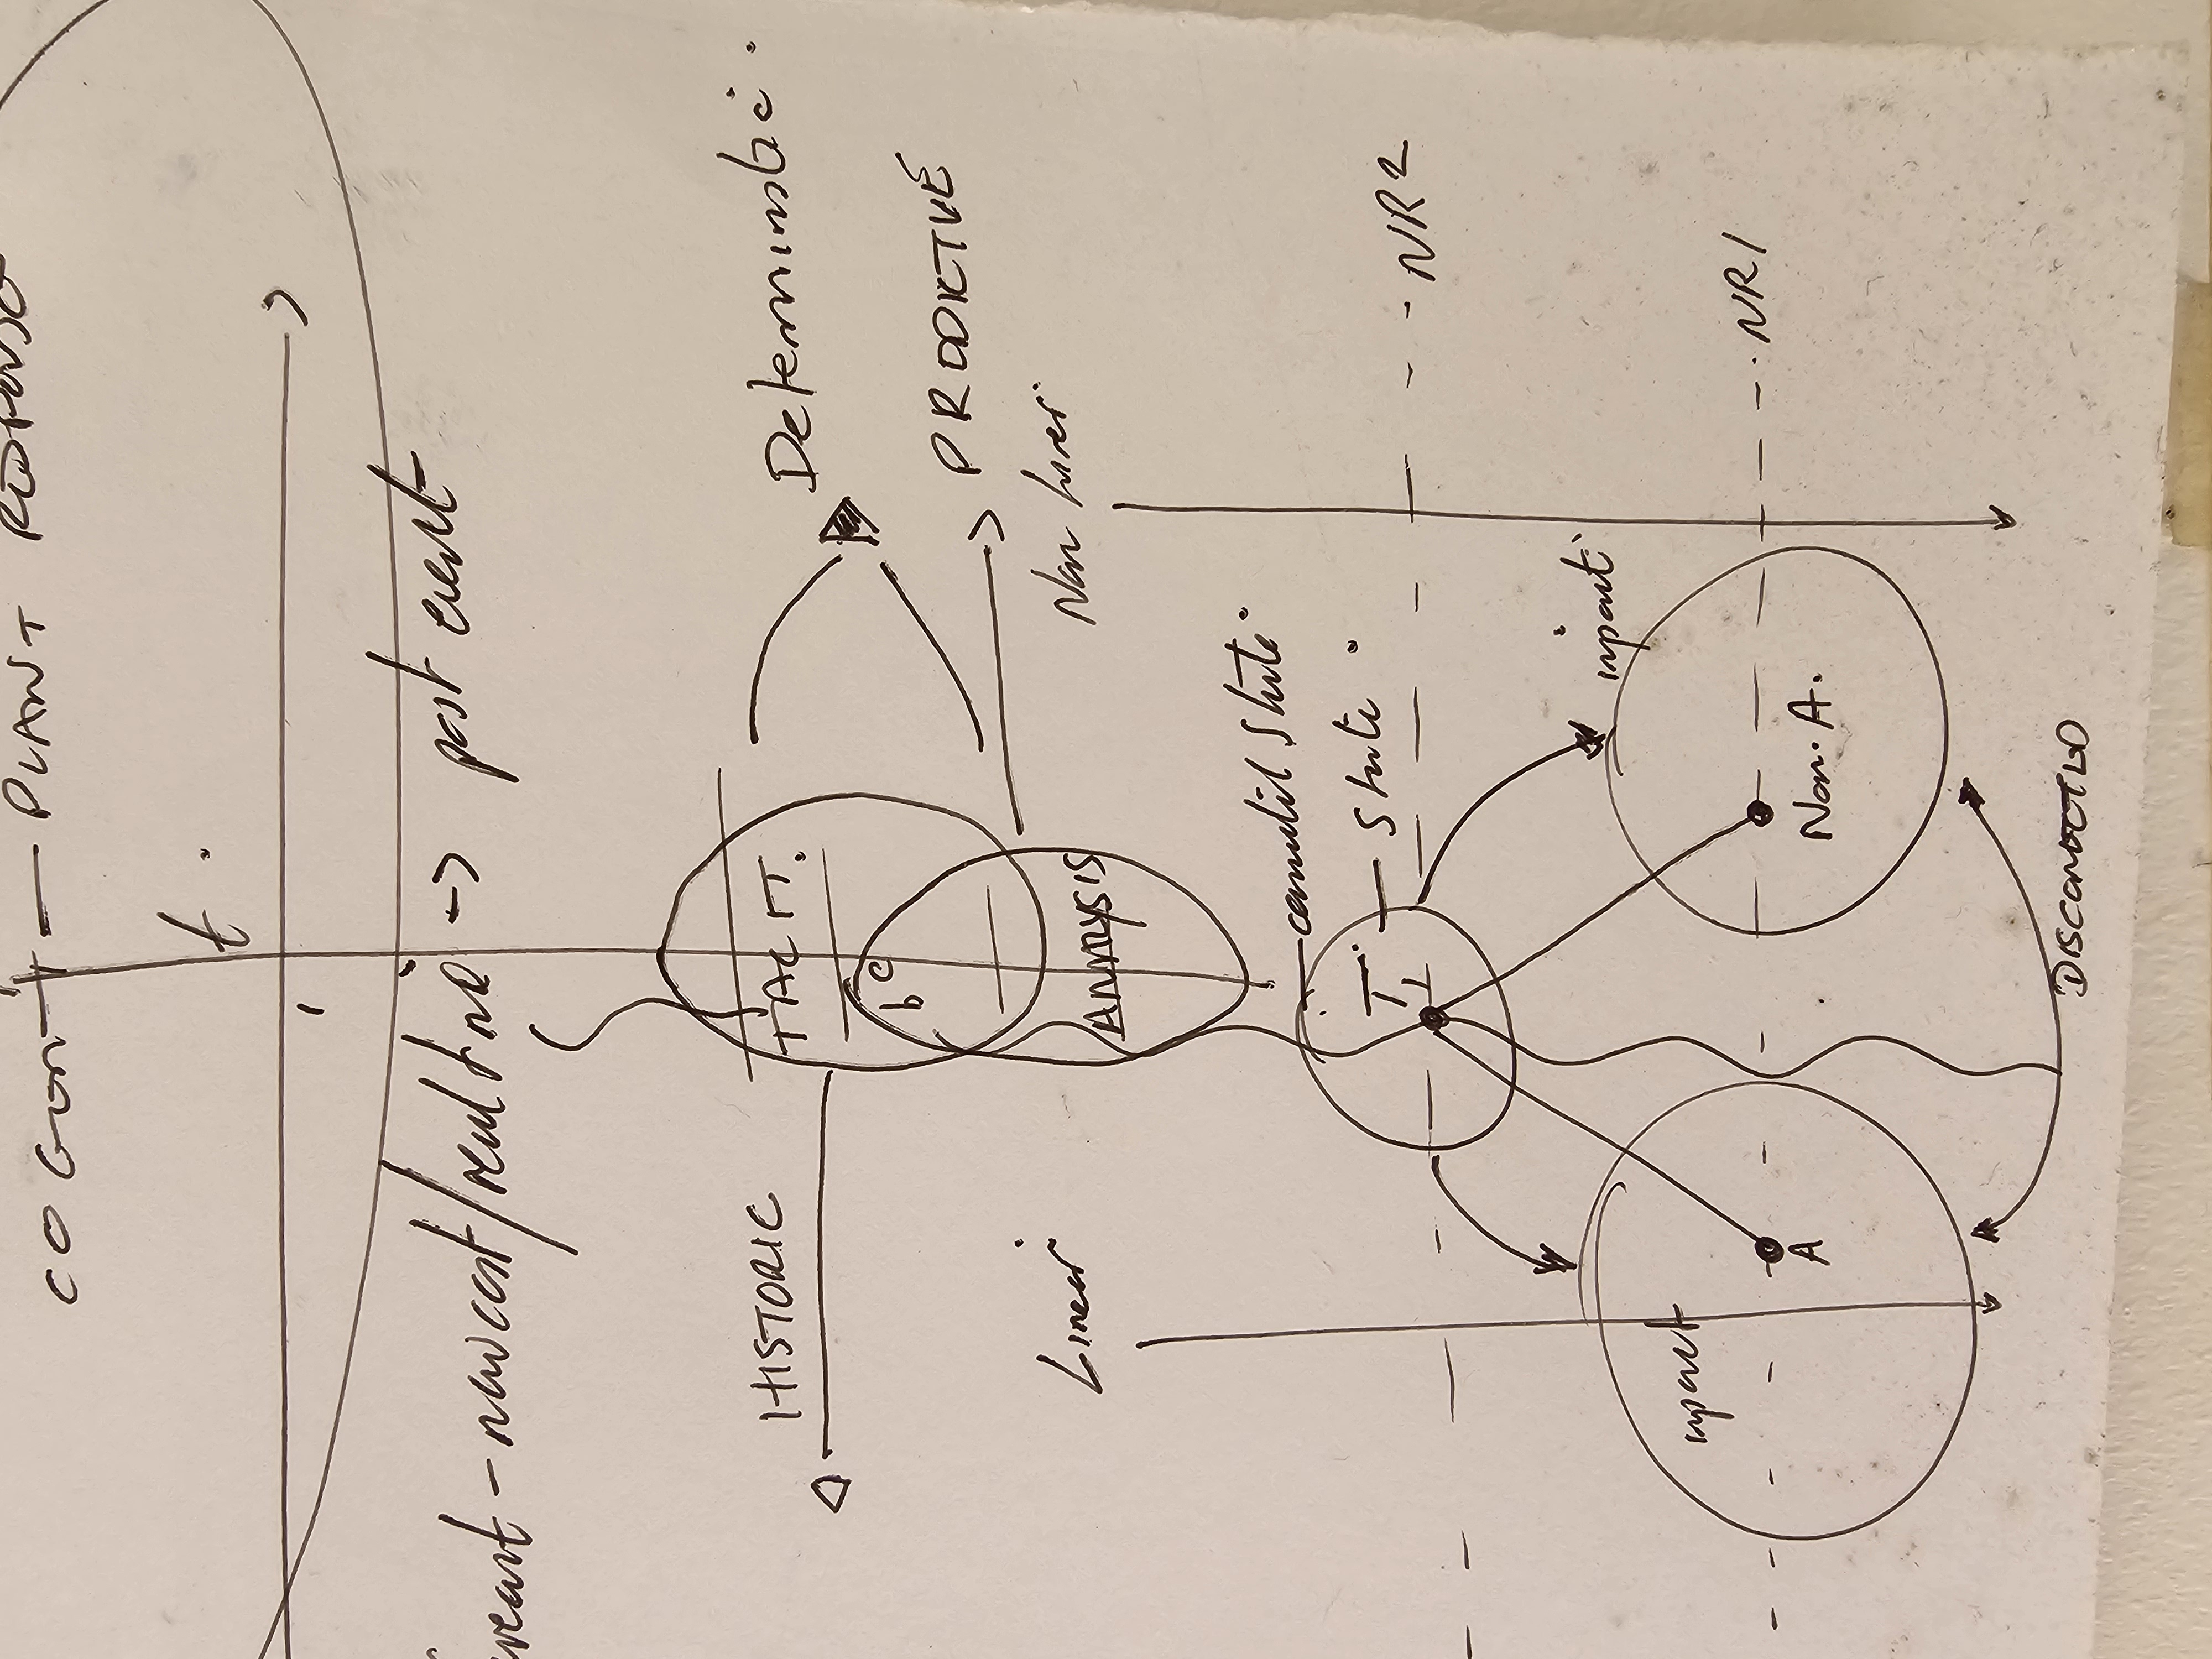 COGENT — PLANT RESPONSE
t
- nowcast/real time -> post event
HISTORIC
TACIT.
Deterministic
b c
PREDICTIVE
Linear
Non linear
ANALYSIS
State
T
State
NR2
impact
impact
NR1
A
Non. A.
DISCONNECTED